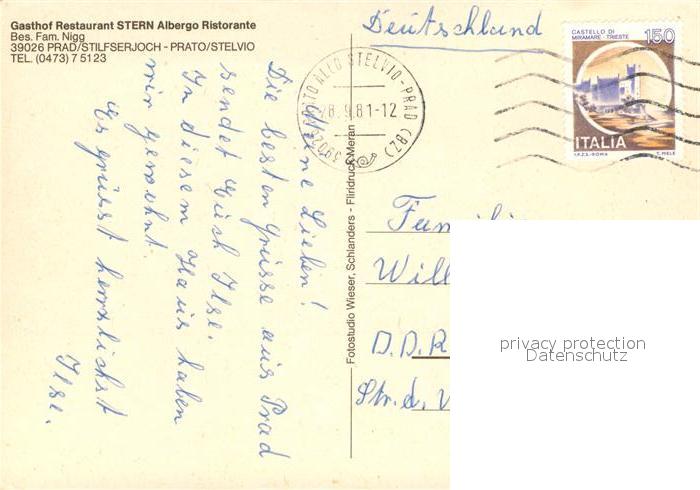 Gasthof Restaurant STERN Albergo Ristorante
Bes. Fam. Nigg
39026 PRAD/STILFSERJOCH - PRATO/STELVIO
TEL. (0473) 75123
Meine Lieben!
Die besten Grüsse aus Prad
sendet Euch Ilse.
In diesem Haus haben
wir gewohnt
Es grüsst herzlichst
Ilse.
Fotostudio Wieser, Schlanders - Fliridruck Meran
39026 PRATO ALLO STELVIO - PRAD (BZ)
28.9.81-12
CASTELLO DI
MIRAMARE - TRIESTE
150
ITALIA
I.P.Z.S.-ROMA T. MIELE
Deutschland
Familie
Will
D.D.R
Str. d.
privacy protection
Datenschutz